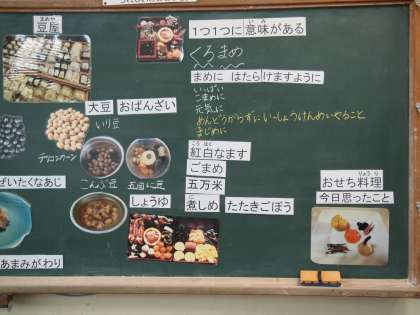 まめや
豆屋
大豆 おばんざい
いり豆
デリコンクーン
こんぶ豆
五目に豆
ぜいたくなあじ
しょうゆ
あまみがわり
1つ1つに意味がある
いみ
くろまめ
まめに はたらけますように
いっぱい
こまめに
元気に
めんどうがらずにいっしょうけんめいやること
まじめに
こうはく
紅白なます
ごまめ
五万米
に
煮しめ たたきごぼう
りょうり
おせち料理
今日思ったこと